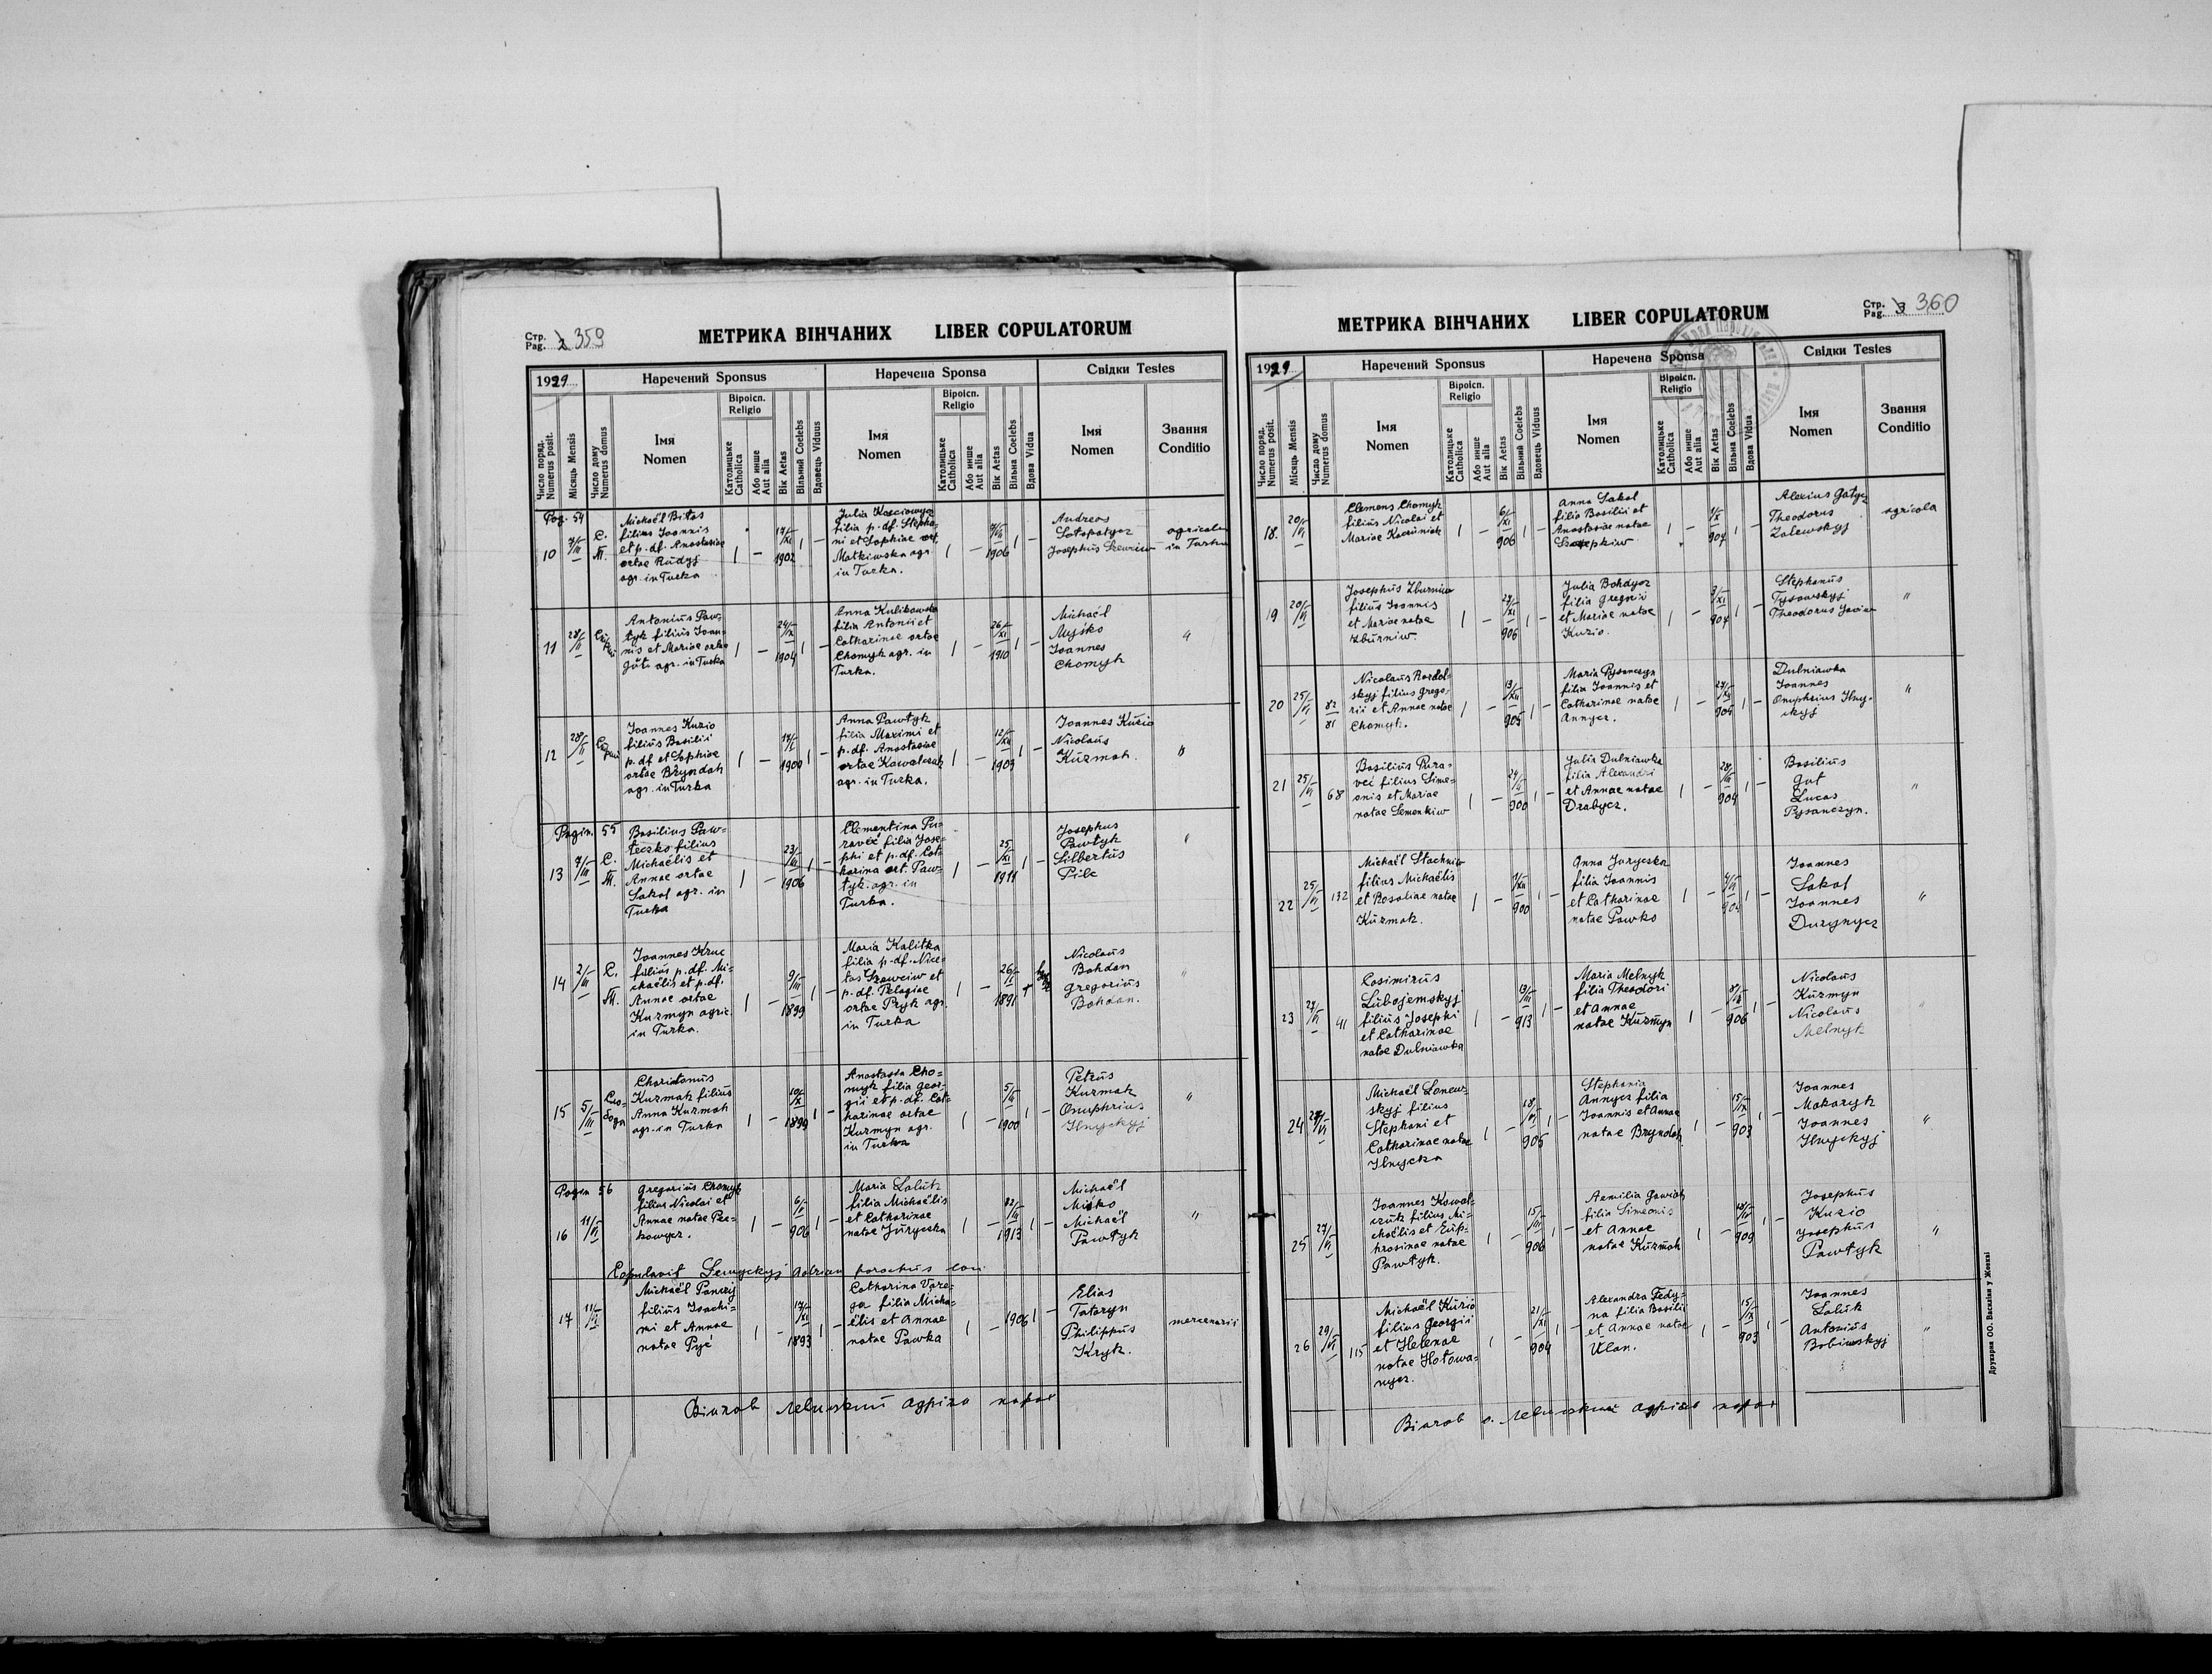 Стр.
Pag. 2 359
МЕТРИКА ВІНЧАНИХ LIBER COPULATORUM
1929
Наречений Sponsus
Наречена Sponsa
Свідки Testes
Число поряд.
Numerus posit.
Місяць Mensis
Число дому
Numerus domus
Імя
Nomen
Віроісп.
Religio
Католицьке
Catholica
Або инше
Aut alia
Вік Aetas
Вільний Coelebs
Вдовець Viduus
Імя
Nomen
Віроісп.
Religio
Католицьке
Catholica
Або инше
Aut alia
Вік Aetas
Вільна Coelebs
Вдова Vidua
Імя
Nomen
Звання
Conditio
Pag. 54
10
7/II
Michaël Bitas
filius Joannis
et p. df. Anastasiae
ortae Rudyj
agr. in Turka
1 –
17/XI
1902
1 –
Julia Kosciowycz
filia p. df. Stepha-
ni et Sophiae ort.
Matkiwska agr.
in Turka.
1 –
1906
1 –
Andreas
Łotopatycz
Josephus Szewciw
agricolae
in Turka
11
28/II
Antonius Paw-
tyk filius Joan-
nis et Mariae ortae
Gút agr. in Turka
1 –
24/IX
1904
1 –
Anna Kulikowska
filia Antonii et
Catharinae ortae
Chomyk agr. in
Turka.
1 –
26/XI
1910
1 –
Michaël
Myśko
Joannes
Chomyk
"
12
28/II
Joannes Kuzio
filius Basilii
p. df. et Sophiae
ortae Bryndak
agr. in Turka
1 –
17/I
1900
1 –
Anna Pawtyk
filia Maximi et
p. df. Anastasiae
ortae Kowalczuk
agr. in Turka.
1 –
12/XII
1903
1 –
Joannes Kuzio
Nicolaus
Kuzmak.
"
Pagin. 55
13
7/III
Basilius Paw-
teczko filius
Michaëlis et
Annae ortae
Sokol agr. in
Turka
1 –
23/III
1906
1 –
Clementina Pu-
raveć filia Jose-
phi et p. df. Cat-
harina ort. Paw-
tyk. agr. in
Turka.
1 –
25/XI
1911
1 –
Josephus
Pawtyk
Silbertus
Pilc
"
14
2/III
Joannes Kruc
filius p. df. Mi-
chaëlis et p. df.
Annae ortae
Kuzmyn agric.
in Turka.
1 –
9/III
1899
1 –
Maria Kalitka
filia p. df. Nice-
tas Szewciw et
p. df. Pelagiae
ortae Pryk agr.
in Turka
1 –
26/I
1891
Nicolaus
Bohdan
Gregorius
Bohdan.
"
15
5/III
Charitonus
Kuzmak filius
Anna Kuzmak
agr. in Turka
1 –
10/X
1899
1 –
Anastasia Cho-
myk filia Geor-
gii et p. df. Cat-
harinae ortae
Kuzmyn agr.
in Turka
1 –
5/II
1900
1 –
Petrus
Kuzmak
Onuphrius
Ilnyckyj
"
Pagin 56
16
11/VI
Gregorius Chomyk
filius Nicolai et
Annae natae Pec-
kowycz.
1 –
6/V
906
1 –
Maria Łaluk
filia Michaëlis
et Catharinae
natae Jurycska
1 –
1913
1 –
Michaël
Miśko
Michaël
Pawtyk
"
Copulavit Lewyckyj Adrian parochus loci
17
11/VI
Michaël Pankij
filius Joachi-
mi et Annae
natae Pyć
1 –
17/XI
1893
1 –
Catharina Vare-
ga filia Micha-
ëlis et Annae
natae Pawka
1 –
1906
1 –
Elias
Tataryn
Philippus
Kryk.
mercenarii
Вінчав Левицкий Адріян парох
Стр.
Pag. 3 360
МЕТРИКА ВІНЧАНИХ LIBER COPULATORUM
1929
Наречений Sponsus
Наречена Sponsa
Свідки Testes
Число поряд.
Numerus posit.
Місяць Mensis
Число дому
Numerus domus
Імя
Nomen
Віроісп.
Religio
Католицьке
Catholica
Або инше
Aut alia
Вік Aetas
Вільний Coelebs
Вдовець Viduus
Імя
Nomen
Віроісп.
Religio
Католицьке
Catholica
Або инше
Aut alia
Вік Aetas
Вільна Coelebs
Вдова Vidua
Імя
Nomen
Звання
Conditio
18.
20/VI
Clemens Chomyk
filius Nicolai et
Mariae Kaczuniak
1 –
6/XI
906
1 –
Anna Sokol
filia Basilii et
Anastasiae natae
1 –
1/X
904
1 –
Alexius Gatycz
Theodorus
Zalewskyj
agricola
19
20/VI
Josephus Zburniw
filius Joannis
et Mariae natae
Zburniw.
1 –
24/XI
906
1 –
Julia Bohdycz
filia Gregorii
et Mariae natae
Kuzio.
1 –
3/XI
904
1 –
Stephanus
Tysowskyj
Theodorus Jaciw
"
20
25/VI
82
81
Nicolaus Rozdol-
skyj filius Grego-
rii et Annae natae
Chomyk.
1 –
13/XII
905
1 –
Maria Pysanczyn
filia Joannis et
Catharinae natae
Annycz.
1 –
905
1 –
Dulniawka
Joannes
Onuphrius Ilny-
ckyj
"
21
25/VI
68
Basilius Pura-
već filius Sime-
onis et Mariae
natae Semenkiw
1 –
900
1 –
Julia Dulniawka
filia Alexandri
et Annae natae
Drabycz.
1 –
904
1 –
Basilius
Gut
Lucas
Pysanczyn.
"
22
25/VI
132
Michaël Stachniw
filius Michaëlis
et Rosaliae natae
Kuzmak.
1 –
900
1 –
Anna Jurycska
filia Joannis
et Catharinae
natae Pawko
1 –
904
1 –
Joannes
Sokol
Joannes
Durynycz
"
23
27/VI
41
Casimirus
Lubojemskyj
filius Josephi
et Catharinae
natae Dulniawka
1 –
13/III
913
1 –
Maria Melnyk
filia Theodori
et Annae
natae Kuzmyn
1 –
906
1 –
Nicolaus
Kuzmyn
Nicolaus
Melnyk
"
24
28/VI
Michaël Loneur-
skyj filius
Stephani et
Catharinae natae
Ilnycka
1 –
905
1 –
Stephania
Annycz filia
Joannis et Annae
natae Bryndak
1 –
15/IX
903
1 –
Joannes
Makaryk
Joannes
Ilnyckyj
"
25
27/VI
Joannes Kowal-
czuk filius Mi-
chaëlis et Eup-
hrosinae natae
Pawtyk.
1 –
15/III
906
1 –
Aemilia Gawiak
filia Simeonis
et Annae
natae Kuzmak
1 –
909
1 –
Josephus
Kuzio
Josephus
Pawtyk
"
26
29/VI
115
Michaël Kuzio
filius Georgii
et Helenae
natae Hotowa-
nycz.
1 –
21/XI
904
1 –
Alexandra Fedy-
na filia Basilii
et Annae natae
Ulan.
1 –
15/IX
903
1 –
Joannes
Łaluk
Antonius
Bobiwskyj
"
Вінчав о. Левицкий Адріян парох
Друкарня ОО. Василіян у Жовкві